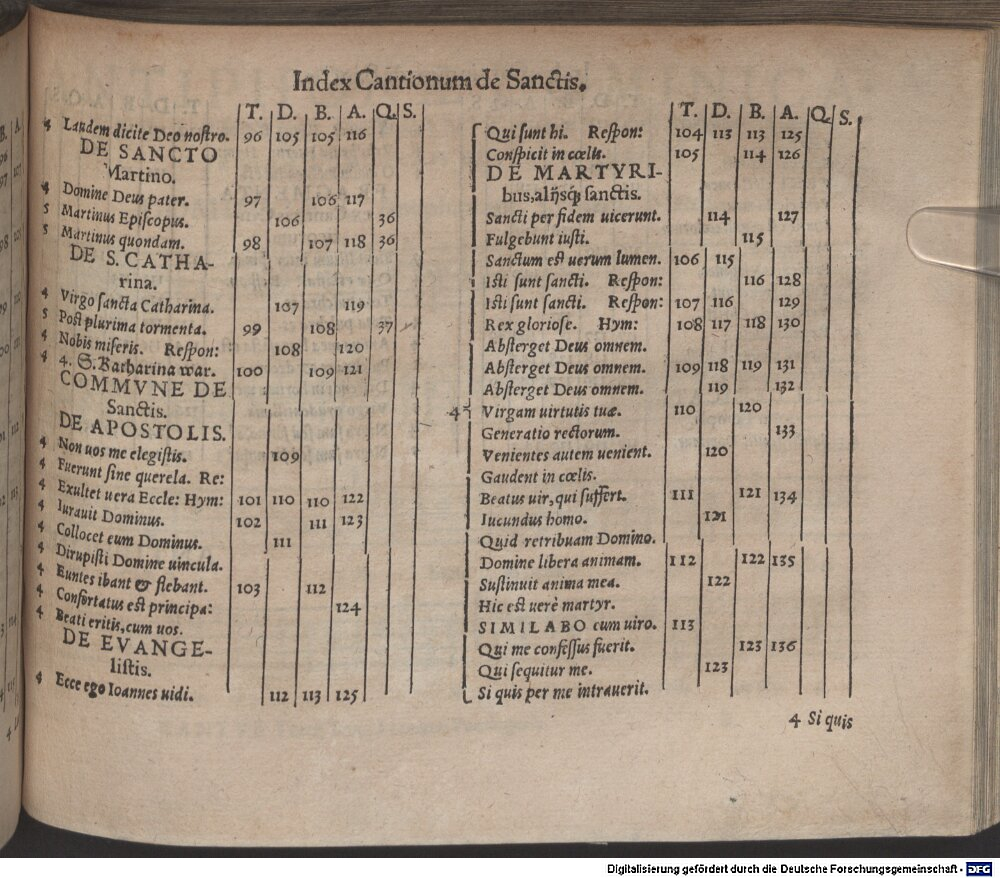 Index Cantionum de Sanctis.
T. D. B. A. Q. S.
4 Laudem dicite Deo nostro. 96 105 105 116
DE SANCTO
Martino.
4 Domine Deus pater. 97 106 117
5 Martinus Episcopus. 106 36
5 Martinus quondam. 98 107 118 36
DE S. CATHA-
rina.
4 Virgo sancta Catharina. 107 119
5 Post plurima tormenta. 99 108 37
4 Nobis miseris. Respon: 108 120
4 4. S. Katharina war. 100 109 121
COMMVNE DE
Sanctis.
DE APOSTOLIS.
4 Non uos me elegistis. 109
4 Fuerunt sine querela. Re:
4 Exultet uera Eccle: Hym: 101 110 110 122
4 Iurauit Dominus. 102 111 123
4 Collocet eum Dominus. 111
4 Dirupisti Domine uincula.
4 Euntes ibant & flebant. 103 112
4 Confortatus est principa: 124
4 Beati eritis, cum uos.
DE EVANGE-
listis.
4 Ecce ego Ioannes uidi. 112 113 125
T. D. B. A. Q. S.
Qui sunt hi. Respon: 104 113 113 125
Conspicit in cœlis. 105 114 126
DE MARTYRI-
bus, alijsq; sanctis.
Sancti per fidem uicerunt. 114 127
Fulgebunt iusti. 115
Sanctum est uerum lumen. 106 115
Isti sunt sancti. Respon: 116 128
Isti sunt sancti. Respon: 107 116 129
Rex gloriose. Hym: 108 117 118 130
Absterget Deus omnem.
Absterget Deus omnem. 109 118 119 131
Absterget Deus omnem. 119 132
4 Virgam uirtutis tuæ. 110 120
Generatio rectorum. 133
Venientes autem uenient. 120
Gaudent in cœlis.
Beatus uir, qui suffert. 111 121 134
Iucundus homo. 121
Quid retribuam Domino.
Domine libera animam. 112 122 135
Sustinuit anima mea. 122
Hic est uerè martyr.
SIMILABO cum uiro. 113
Qui me confessus fuerit. 123 136
Qui sequitur me. 123
Si quis per me intrauerit.
4 Si quis
Digitalisierung gefördert durch die Deutsche Forschungsgemeinschaft - DFG